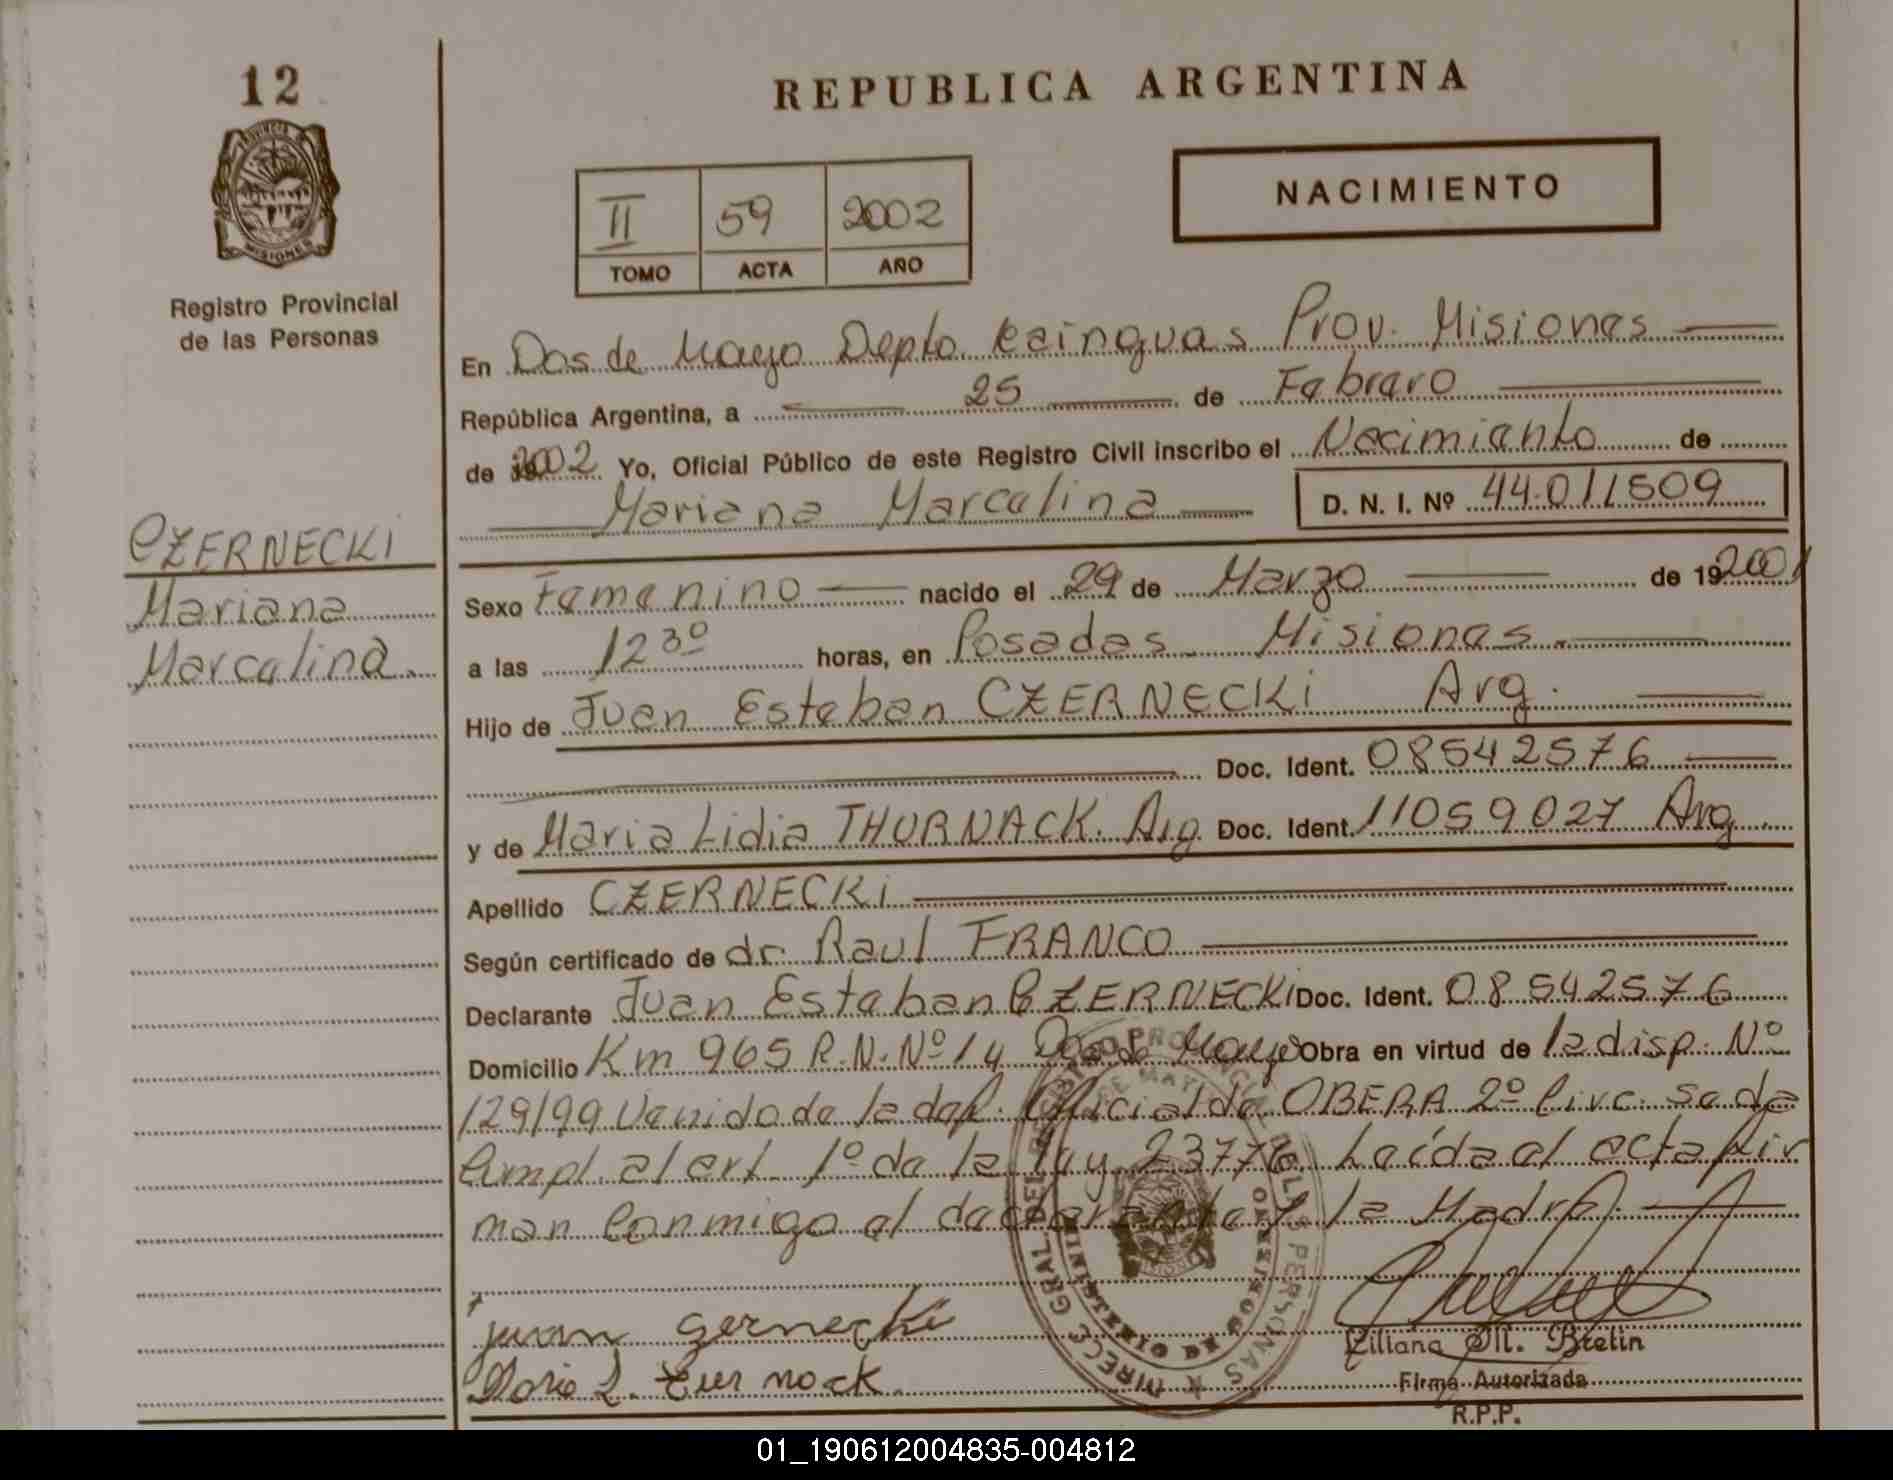 12
REPUBLICA ARGENTINA
NACIMIENTO
II 59 2002
TOMO ACTA AÑO
Registro Provincial
de las Personas
En Dos de Mayo Depto. Cainguas Prov. Misiones
República Argentina, a 25 de Febrero
de 2002 Yo, Oficial Público de este Registro Civil inscribo el Nacimiento de
Mariana Marcelina D. N. I. Nº 44.011.509
CZERNECKI
Mariana
Marcelina.
Sexo Femenino nacido el 29 de Marzo de 19 2001
a las 12 30 horas, en Posadas Misiones.
Hijo de Juan Esteban CZERNECKI Arg.
Doc. Ident. 08542576
y de Maria Lidia THURNACK. Arg. Doc. Ident. 11059027 Arg.
Apellido CZERNECKI
Según certificado de dr. Raul FRANCO
Declarante Juan Esteban CZERNECKI Doc. Ident. 08542576
Domicilio Km 965 R.N. Nº 14 Dos de Mayo Obra en virtud de la disp. Nº
129/99 Venido de la del. Oficial de OBERA 2º Circ. se da
Cumpl. al art. 1º de la ley 23776. Leída el acta fir
man Conmigo el declarante y la Madre.
Juan Czernecki
Maria L. Turnock.
Liliana M. Bretin
Firma Autorizada
R.P.P.
MINISTERIO DE GOBIERNO
PROVINCIA DE MISIONES
01_190612004835-004812